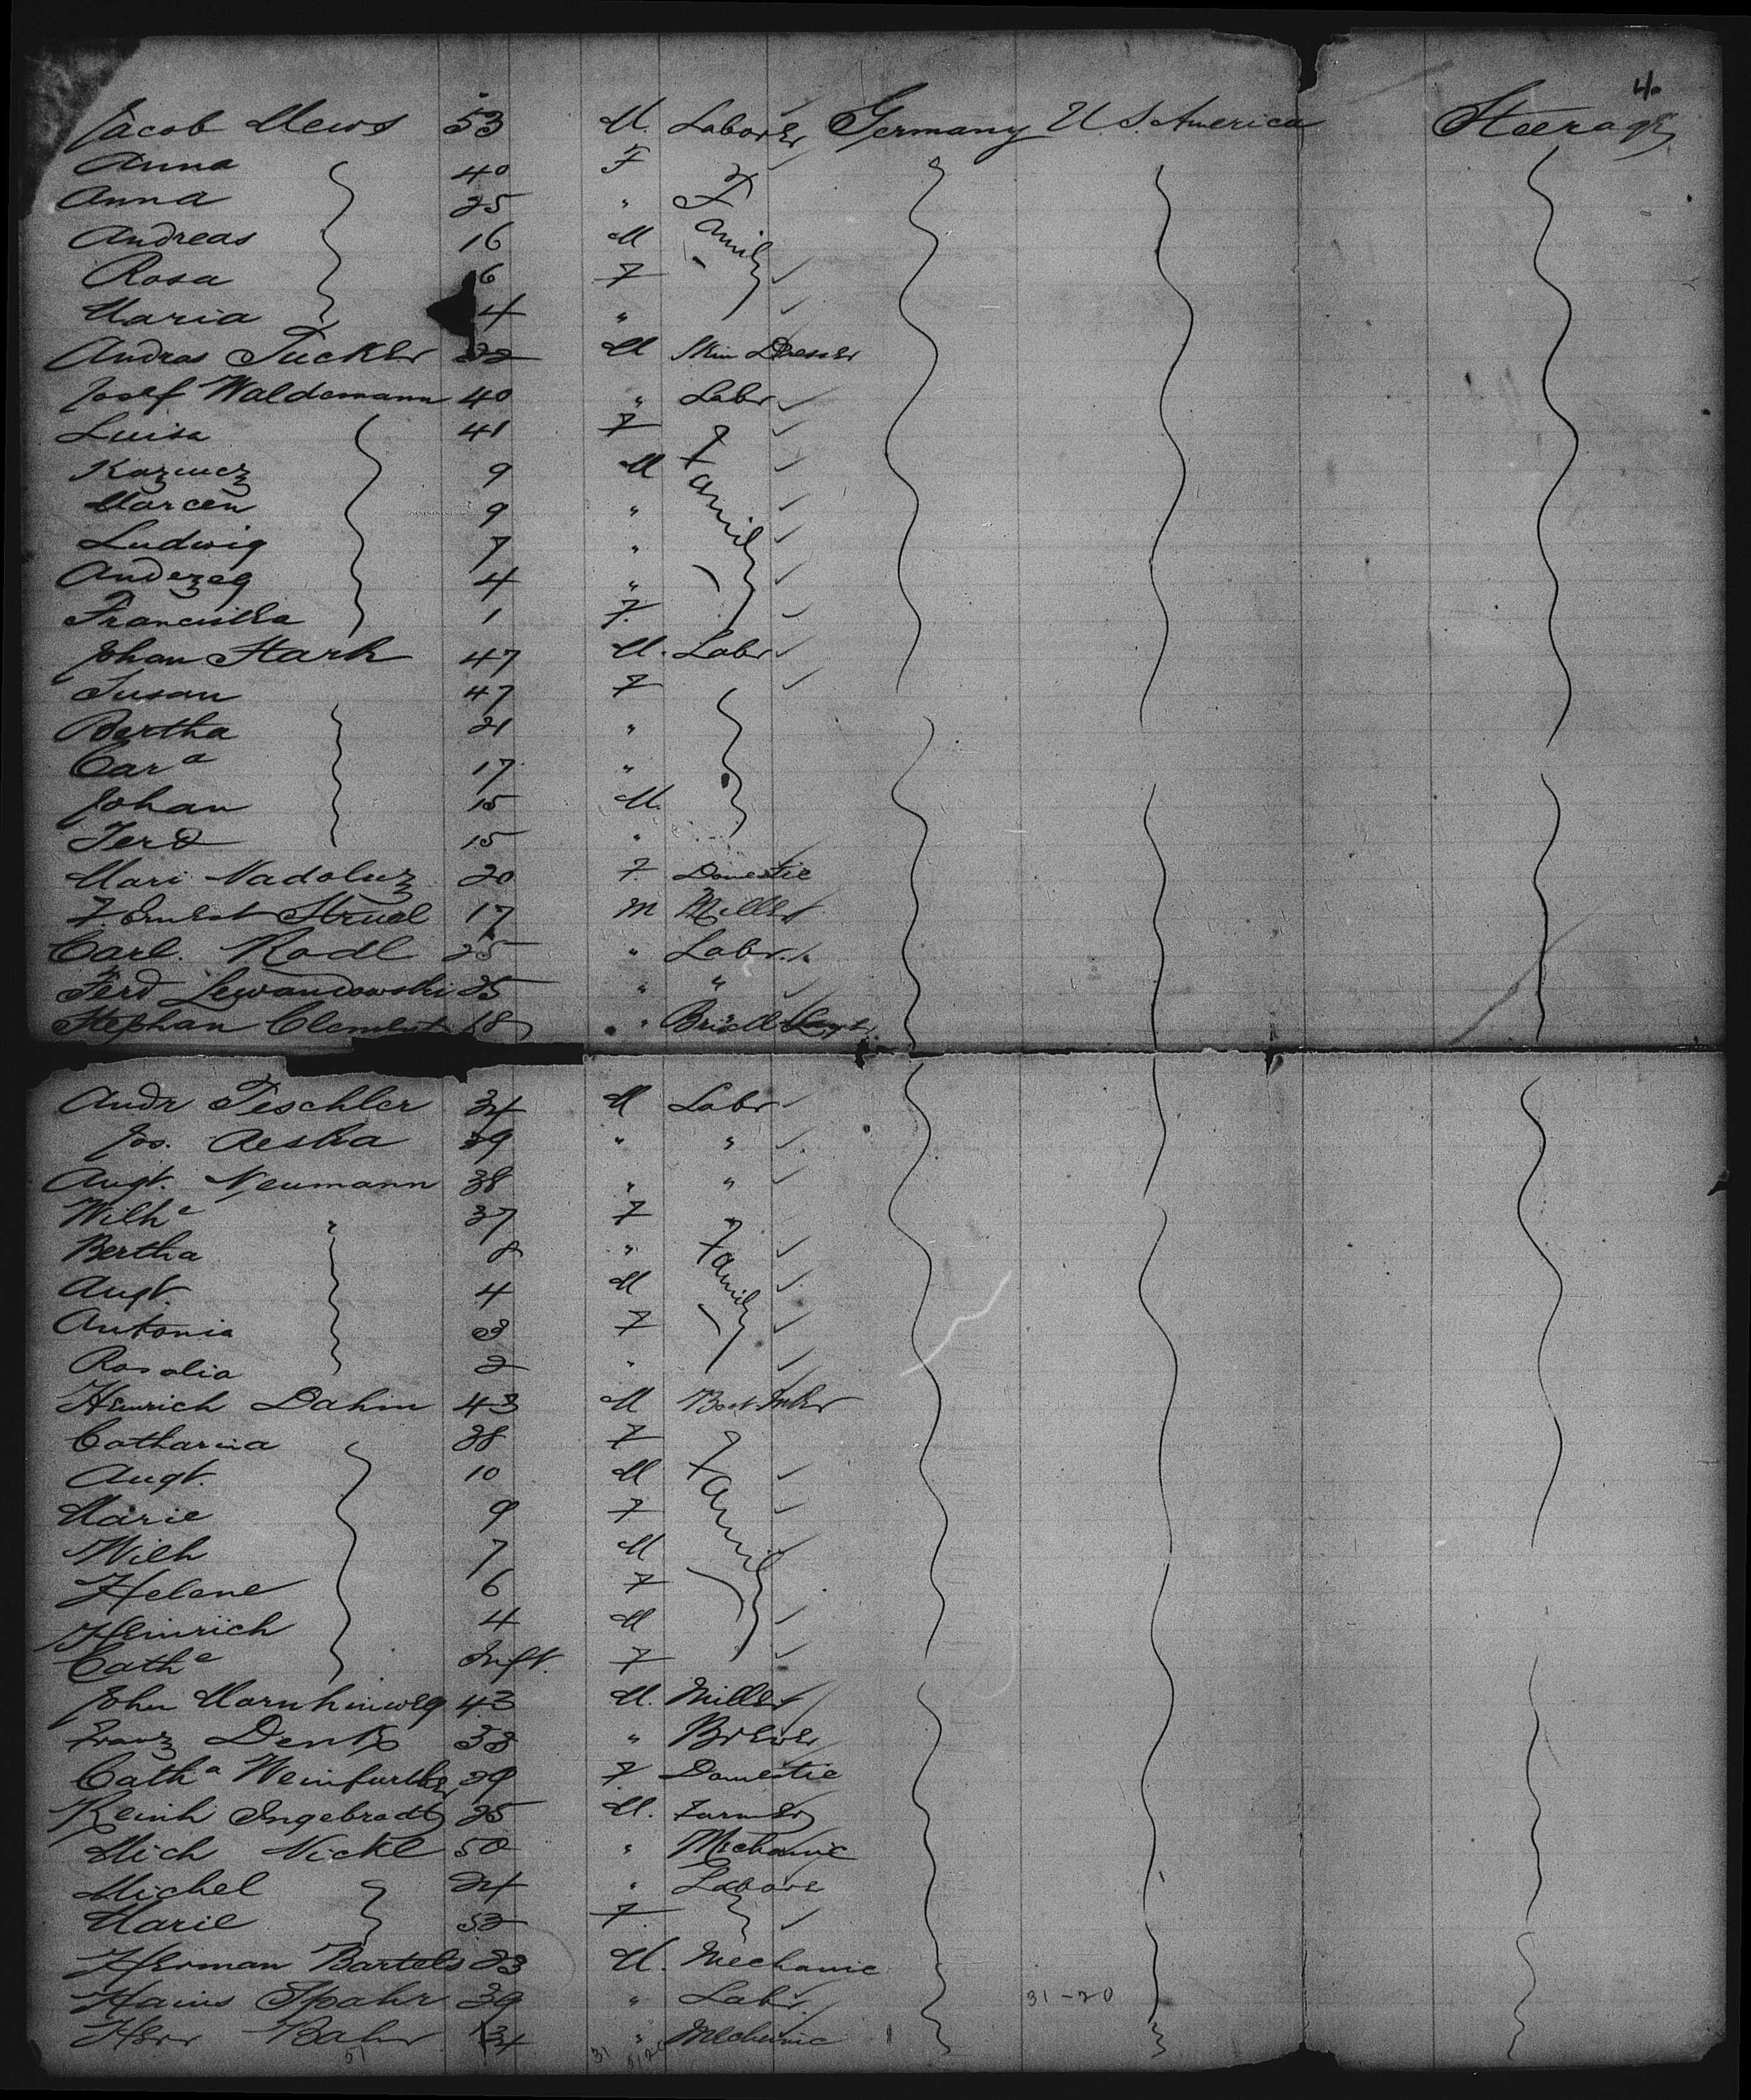 4.
Jacob Mews 53 M. Laborer Germany U S. America Steerage
Anna 40 F
Anna 25 " Family
Andreas 16 M
Rosa 6 F
Maria 4 "
Andras Tucker 22 M Skin Dresser
Josef Waldemann 40 " Labr
Luisa 41 F
Kazmcz 9 M Family
Marcen 9 "
Ludwig 7 "
Anderzeg 4 "
Franciska 1 F.
Johan Stark 47 M. Labr
Susan 47 F
Bertha 21 "
Cara 17 "
Johan 15 M.
Ferd 15 "
Mari Nadoluz 20 F. Domestic
F. Ernest Struel 17 M Miller
Carl. Rodl 25 " Labr.
Ferd Lewandowski 25 " "
Stephan Clement 18 "
Andr Teschler 34 M Labr
Jos. Aeska 29 " "
Augt. Neumann 38 " "
Wilhe 37 F
Bertha 8 " Family
Augt. 4 M
Antonia 3 F
Rosalia 2 "
Heinrich Dahm 43 M Bootmkr
Catharina 38 F
Augt. 10 M Family
Marie 9 F
Wilh 7 M
Helene 6 F
Heinrich 4 M
Cathe Inft. F
John Marnhinweg 43 M. Miller
Franz Dentz 38 " Brewer
Catha Weinfurther 29 F. Domestic
Reinh Ingebradt 25 M. Farmer
Mich Nickl 50 " Mechanic
Michel 24 " Labore
Marie 53 F
Herman Bartels 23 M. Mechanic
Hains Spahr 39 " Labr. 31-20
Herr Bahr 34 " Mechanic
51 31